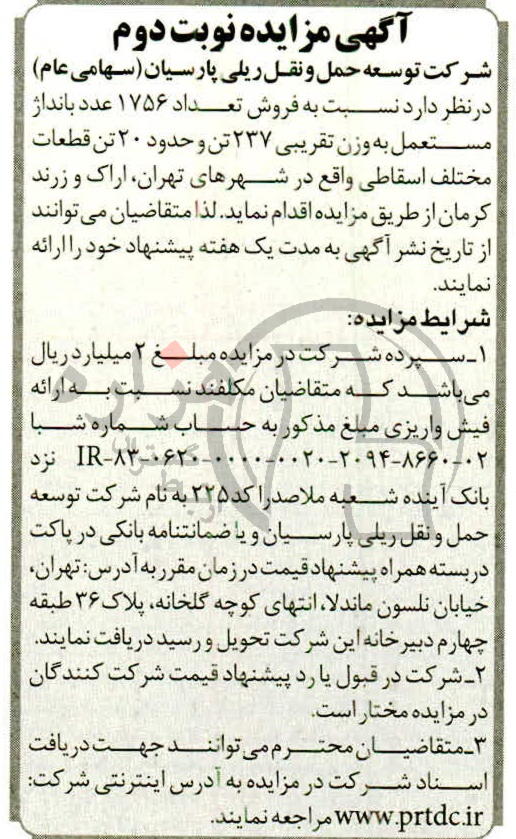 آگهی مزایده نوبت دوم
شرکت توسعه حمل و نقل ریلی پارسیان (سهامی عام)
در نظر دارد نسبت به فروش تعداد ۱۷۵۶ عدد بانداژ
مستعمل به وزن تقریبی ۲۳۷ تن و حدود ۲۰ تن قطعات
مختلف اسقاطی واقع در شهرهای تهران، اراک و زرند
کرمان از طریق مزایده اقدام نماید. لذا متقاضیان می‌توانند
از تاریخ نشر آگهی به مدت یک هفته پیشنهاد خود را ارائه
نمایند.
شرایط مزایده:
۱ـ سپرده شرکت در مزایده مبلغ ۲ میلیارد ریال
می‌باشد که متقاضیان مکلفند نسبت به ارائه
فیش واریزی مبلغ مذکور به حساب شماره شبا
IR-۸۳-۰۶۲۰-۰۰۰۰-۰۰۲۰-۲۰۹۴-۸۶۶۰-۰۲ نزد
بانک آینده شعبه ملاصدرا کد ۲۲۵ به نام شرکت توسعه
حمل و نقل ریلی پارسیان و یا ضمانتنامه بانکی در پاکت
دربسته همراه پیشنهاد قیمت در زمان مقرر به آدرس: تهران،
خیابان نلسون ماندلا، انتهای کوچه گلخانه، پلاک ۳۶ طبقه
چهارم دبیرخانه این شرکت تحویل و رسید دریافت نمایند.
۲ـ شرکت در قبول یا رد پیشنهاد قیمت شرکت کنندگان
در مزایده مختار است.
۳ـ متقاضیان محترم می‌توانند جهت دریافت
اسناد شرکت در مزایده به آدرس اینترنتی شرکت:
www.prtdc.ir مراجعه نمایند.